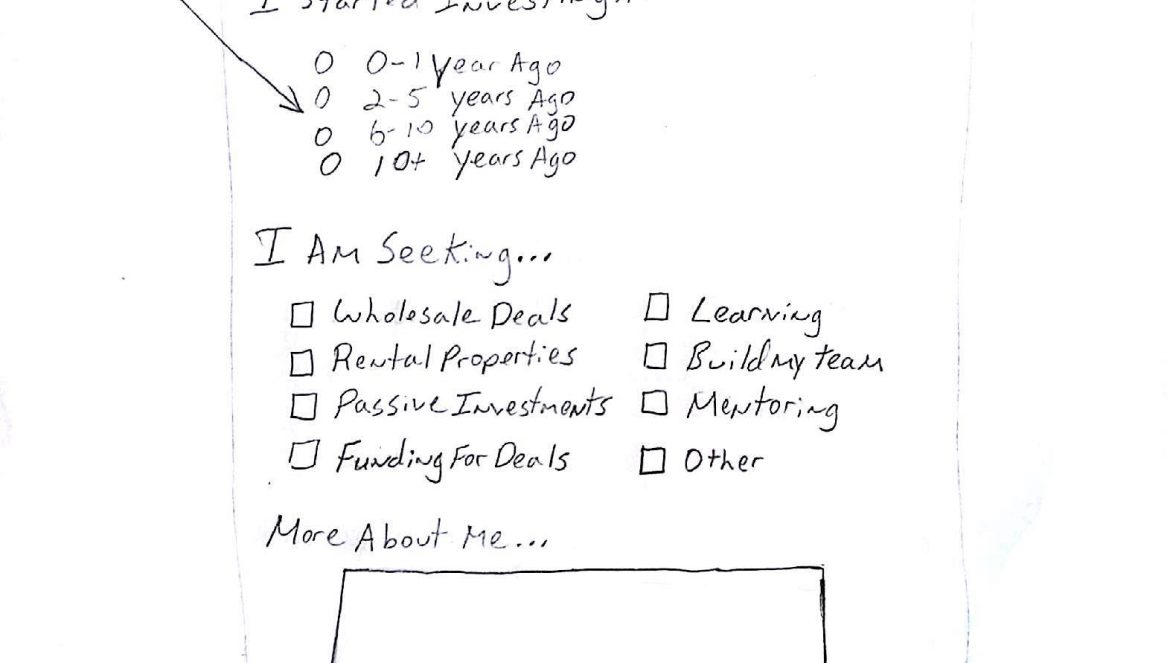 I Started Investing...
O 0-1 Year Ago
O 2-5 years Ago
O 6-10 years Ago
O 10+ years Ago
I Am Seeking...
☐ Wholesale Deals ☐ Learning
☐ Rental Properties ☐ Build my team
☐ Passive Investments ☐ Mentoring
☐ Funding For Deals ☐ Other
More About Me...